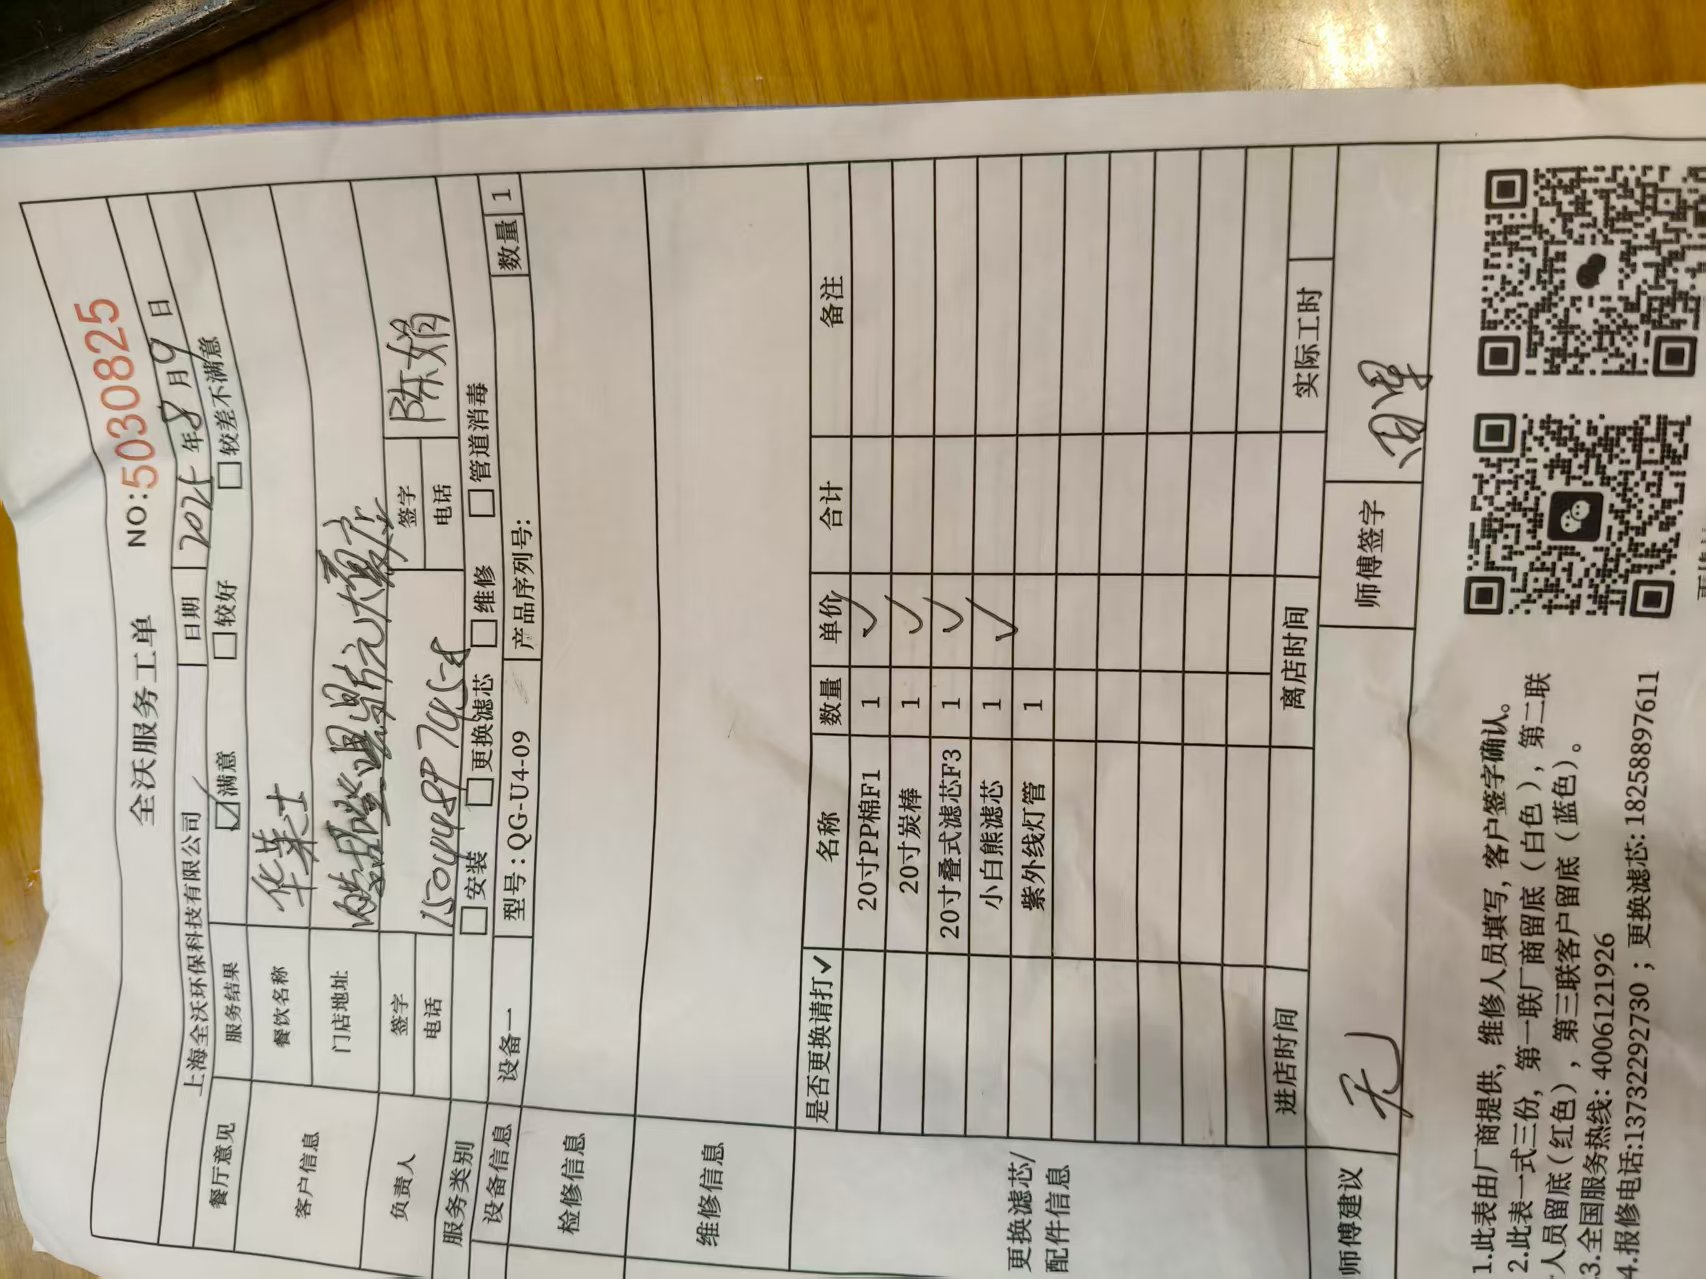 全沃服务工单 NO:50308​25
上海全沃环保科技有限公司 日期 2025年8月9日
餐厅意见 服务结果 ☑满意 □较好 □较差不满意
客户信息 餐饮名称 华莱士
门店地址
负责人 签字 签字 陈娟
电话 电话
服务类别 □安装 □更换滤芯 □维修 □管道消毒
设备信息 设备一 型号:QG-U4-09 产品序列号: 数量 1
检修信息
维修信息
更换滤芯/配件信息
是否更换请打✓ 名称 数量 单价 合计 备注
20寸PP棉F1 1 ✓
20寸炭棒 1 ✓
20寸叠式滤芯F3 1 ✓
小白熊滤芯 1 ✓
紫外线灯管 1
进店时间 离店时间 实际工时
师傅建议 无 师傅签字
1.此表由厂商提供,维修人员填写,客户签字确认。
2.此表一式三份,第一联厂商留底(白色),第二联
人员留底(红色),第三联客户留底(蓝色)。
3.全国服务热线:4006121926
4.报修电话:13732292730;更换滤芯:18258897611